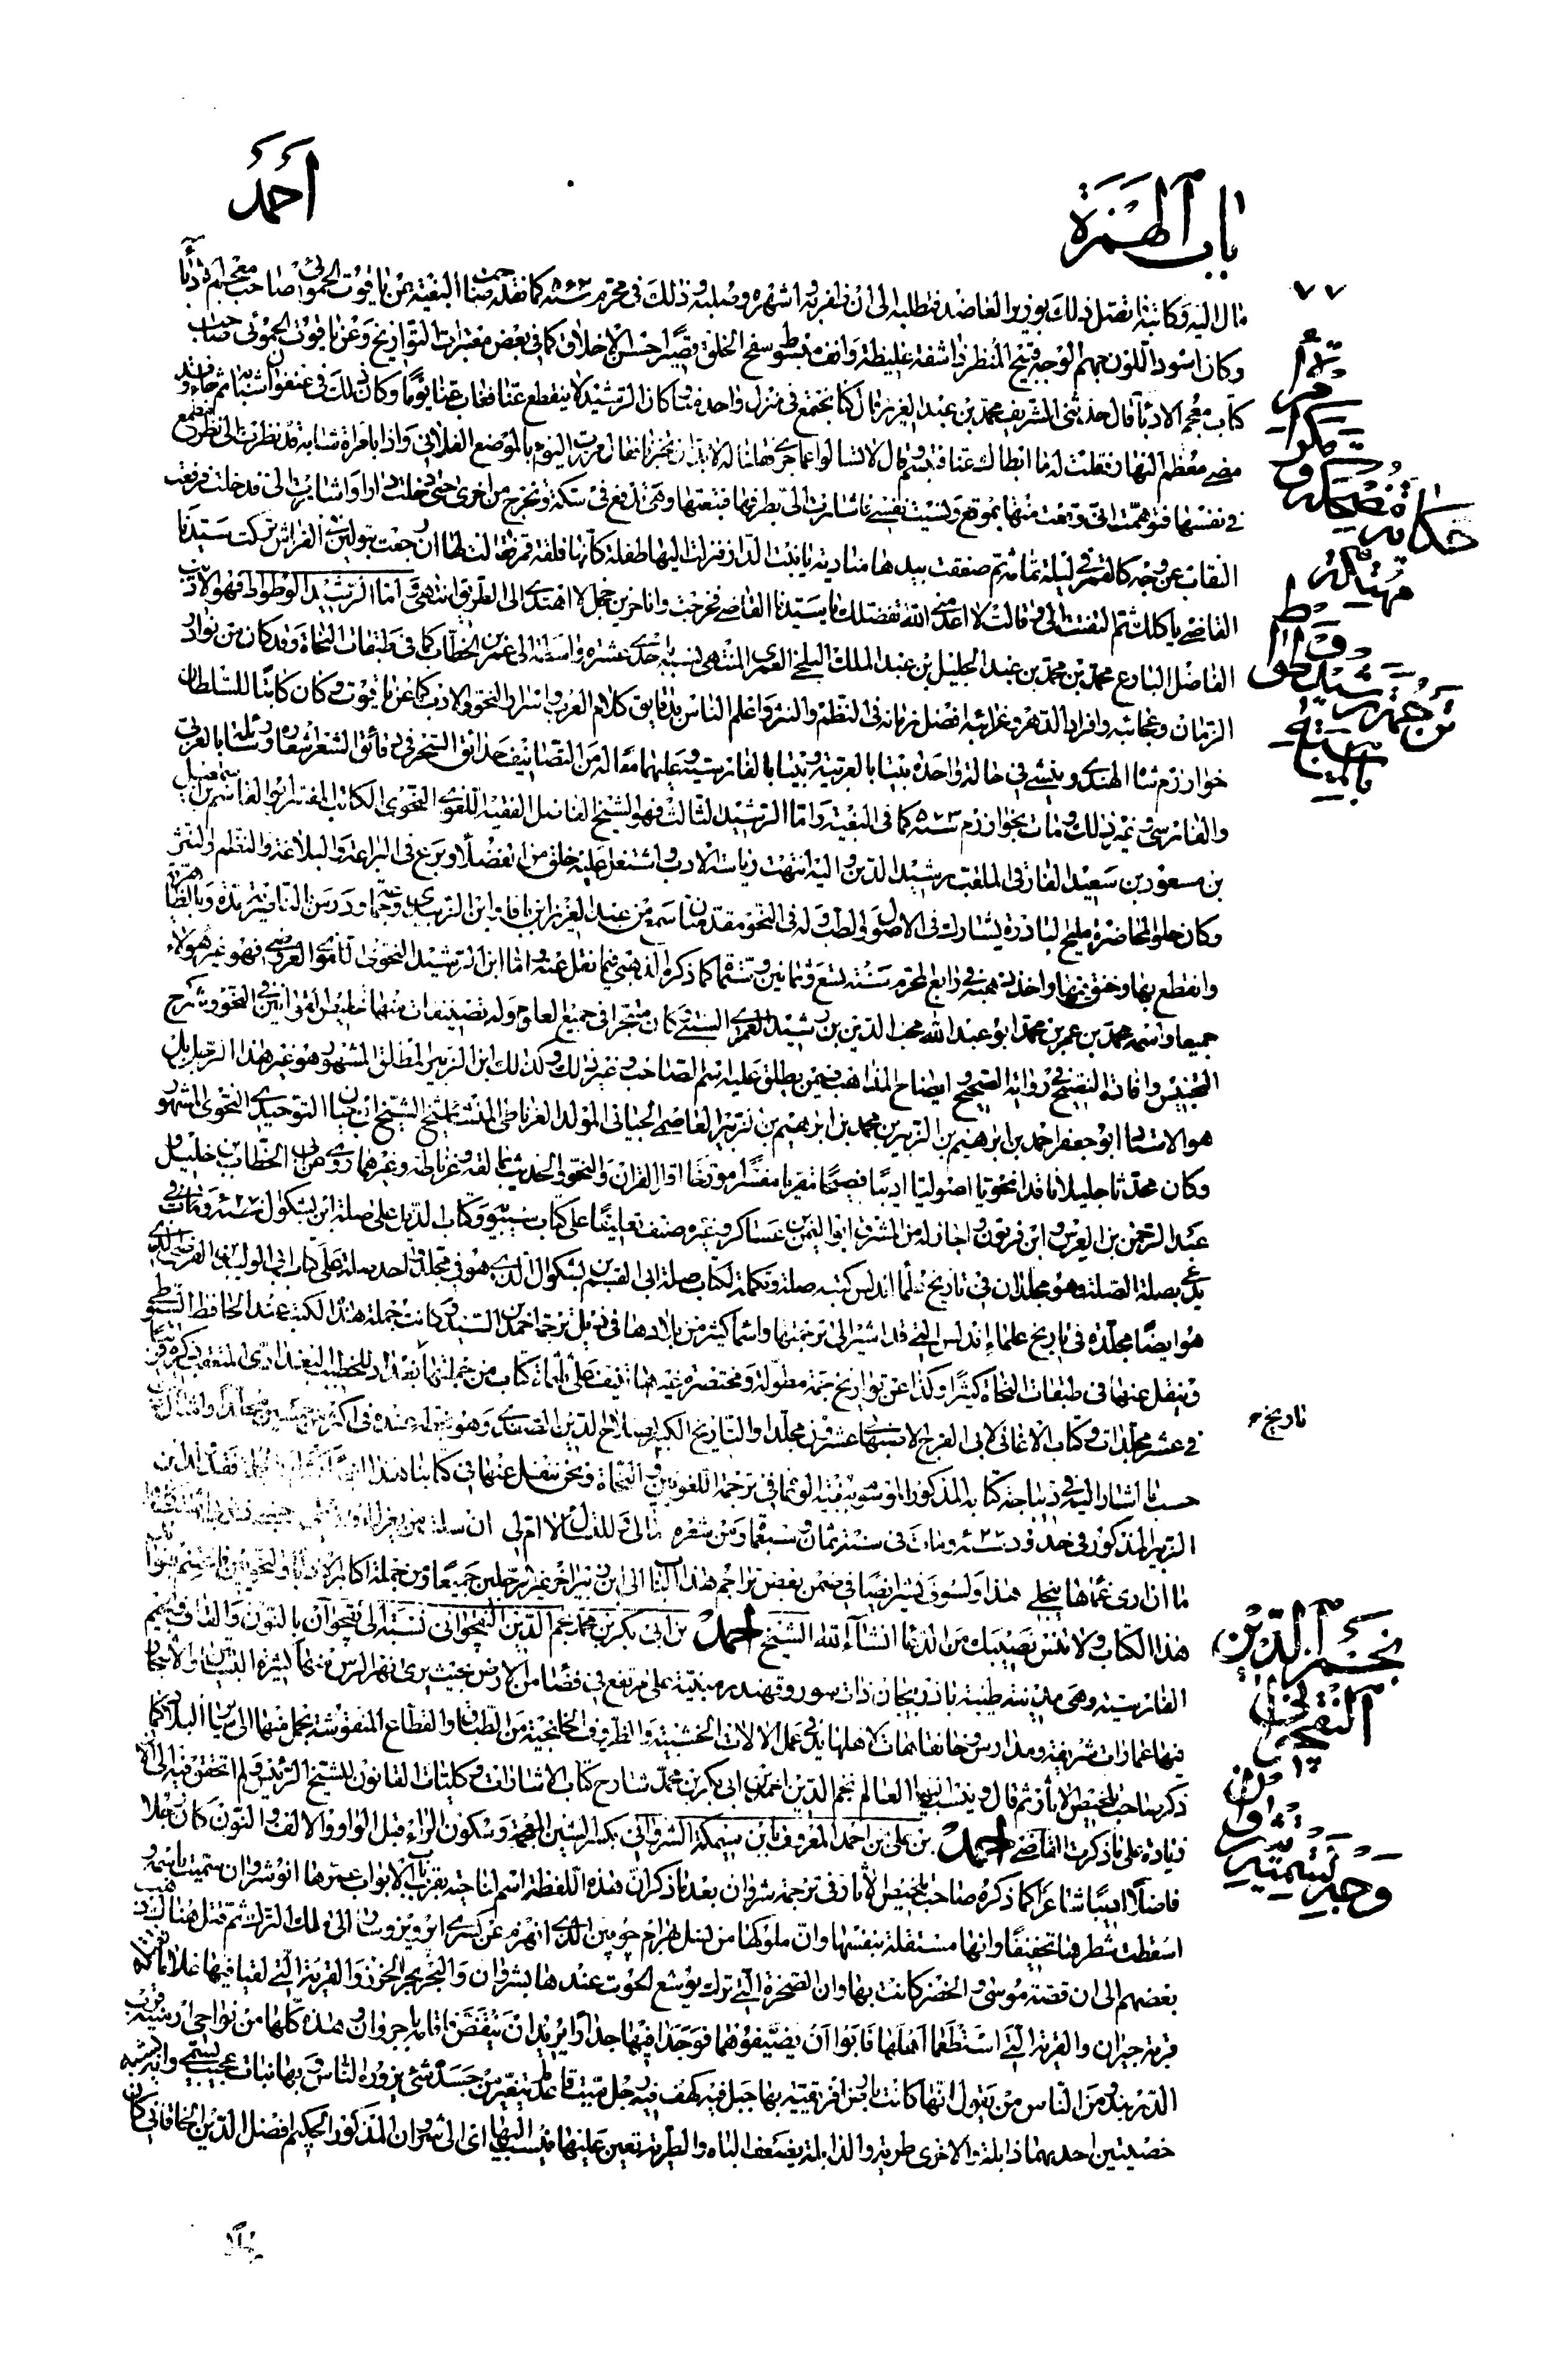 باب الهمزة
احمد
٧٧
مال اليه وكاتبه فاتصل ذلك بوزير العاضد فتطلبه الى ان ظفر به واشهره وصلبه وذلك في محرم سنة كما نقله صاحب البغية عن ياقوت الحموي صاحب معجم الادباء
وكان اسود اللون جهم الوجه قبيح المنظر ذا شفة غليظة وانف مبسوط سفج الخلق قصيرا حسن الاخلاق كما في بعض معتبرات التواريخ وعن ياقوت الحموي صاحب
كتاب معجم الادباء قال حدثني الشريف محمد بن عبد العزيز قال كنا نجتمع في منزل واحد منا وكان الرشيد لا ينقطع عنا فغاب عنا يوما وكان ذلك في عنفوان شبابه ثم جاء وقد
مضى معظم النهار فقلت له ما ابطا بك عنا فتبسم وقال لا تسالوا عما جرى فقلنا له لا بد ان تخبرنا فقال مررت اليوم بالموضع الفلاني واذا بامراة شابة قد نظرت الى نظر مطمع
في نفسها فتوهمت اني وقعت منها بموقع ونسيت نفسي فاشارت الى بطرفها فتبعتها وهي تدفع في سكة وتخرج من اخرى حتى دخلت دارا واشارت الى فدخلت فرفعت
النقاب عن وجه كالقمر في ليلة تمامه ثم صفقت بيدها منادية يا بنت الدار فنزلت اليها طفلة كانها فلقة قمر فقالت لها ان رجعت تبولين في الفراش تركت سيدنا
القاضي ياكلك ثم التفتت الى وقالت لا اعدمني الله تفضلك يا سيدنا القاضي فخرجت وانا حزين خجل لا اهتدى الى الطريق انتهى واما الرشيد الوطواط فهو الاديب
الفاضل البارع محمد بن محمد بن عبد الجليل بن عبد الملك البلخي العمري المنتهى نسبه باحدى عشرة واسطة الى عمر بن الخطاب كما في طبقات النحاة وقد كان من نوادر
الزمان وعجائبه وافراد الدهر وغرائبه افضل زمانه في النظم والنثر واعلم الناس بدقايق كلام العرب واسرار النحو والادب كما عن ياقوت وكان كاتبا للسلطان
خوارزم شاه الهندى وينشى في حالة واحدة بيتا بالعربية وبيتا بالفارسية ويمليهما معا له من التصانيف حدائق السحر في دقائق الشعر اشعاره رسائله بالعربي
والفارسي وغير ذلك ومات بخوارزم سنة كما في البغية واما الرشيد الثالث فهو الشيخ الفاضل الفقيه اللغوى النحوى الكاتب المفتى ابو القاسم بن اسمعيل
بن مسعود بن سعيد الفارقي الملقب برشيد الدين واليه انتهت رياسة الادب واشتغل عليه خلق من الفضلاء وبرع في البراعة والبلاغة والنظم والنثر
وكان حلو المحاضرة مليح البادرة يشارك في الاصول والطب وله في النحو مقدمتان سمع من عبد العزيز بن باقا وابن الزبيدى وجماعة ودرس بالناصرية مدة وبالظاهرية
وانقطع بها وخنق فيها واخذ ذهبه في رابع المحرم سنة تسع وثمانين وستمائة كما ذكره الذهبي فيما نقل عنه واما ابن الرشيد النحوى اللغوى العروضي فهو غير هؤلاء
جميعا واسمه محمد بن عمر بن محمد ابو عبد الله محب الدين بن رشيد العمرى السبتي كان متبحرا في جميع العلوم وله تصنيفات منها تلخيص القوانين في النحو وشرح
التجنيس وافادة النصيح في رواية الصحيح وايضاح المذاهب فيمن يطلق عليه اسم الصاحب وغير ذلك وكذلك ابن الزبير المطلق المشهور هو غير هذا الرجل بل
هو الاستاد ابو جعفر احمد بن ابرهيم بن الزبير بن محمد بن ابرهيم بن زبير العاصمي الجياني المولد الغرناطي المنشا شيخ الشيخ ابن حيان التوحيدى النحوى المشهور
وكان محدثا جليلا ناقدا نحويا اصوليا اديبا فصيحا مقريا مفسرا مورخا اقرا القران والنحو والحديث بمالقة وغرناطة وغيرهما روى عن ابى الخطاب بن خليل
عبد الرحمن بن الفرس وابن فرتون واجاز له من المشرق ابو اليمن بن عساكر وغيره صنف تعليقا على كتاب سيبويه وكتاب الذيل على صلة ابن بشكوال
يدعى بصلة الصلة وهو مجلدان في تاريخ علماء اندلس كتبه صلة وتكملة لكتاب صلة ابى القسم بن بشكوال الذى هو في مجلد واحد صلة على كتاب ابى الوليد بن الفرضي الذى
هو ايضا مجلدة في تاريخ علماء اندلس التي قد اشير الى ترجمتها واسماء كثير من بلادها في ذيل ترجمة احمد بن السيد وكانت جملة هذه الكتب عند الحافظ السيوطي
وينقل عنها في طبقات النحاة كثيرا وكذا عن تواريخ جمة مطولة ومختصرة غيرها تنيف على ثلثمائة كتاب من جملتها تاريخ بغداد للخطيب البغدادى
في عشر مجلدات وكتاب الاغاني لابي الفرج الاصبهاني عشرون مجلدا والتاريخ الكبير لصلاح الدين الصفدى وهو
حسب ما اشار اليه في ديباجة كتابه المذكور الموسوم ببغية الوعاة في ترجمة اللغويين والنحاة ونحن ننقل عنها في كتابنا هذا
الزبير المذكور في حدود ومات في سنة ثمان وسبعمائة ومن شعره مالي وللتسال لا ام لي
ما ان ارى غماءها ينجلي هذا ولسوف نشير ايضا في ضمن بعض تراجم هذا الباب الى ابن زبير اخر غير الرجلين جميعا ومن جملة اكابر
هذا الكتاب ولا تنس نصيبك من الدنيا انشاء الله الشيخ احمد بن ابي بكر بن محمد نجم الدين النخجواني نسبة الى نقجوان بالنون والقاف
الفارسية وهي مدينة طيبة باذربيجان ذات سور وقهندر مبنية على مرتفع في فضاء من الارض بحيث يرى نهر الرس منها كثيرة البساتين والاشجار
فيها عمارات شريفة ومدارس وخانقاهات لاهلها يد في عمل الالات الخشبية والظروف الخلنجية من الطباق والقطاع المنقوشة يحمل منها الى سائر البلاد كما
ذكر صاحب تلخيص الاثار ثم قال وينسب اليها العالم نجم الدين احمد بن ابى بكر بن محمد شارح كتاب الاشارات وكليات القانون للشيخ الرئيس ولم اتحقق فيه الى الان
زيادة على ما ذكرت القاضي احمد بن على بن احمد المعروف بابن سيمكة الشرواني بكسر الشين المعجمة وسكون الراء قبل الواو والالف والنون كان رجلا
فاضلا اديبا شاعرا كما ذكره صاحب تلخيص الاثار في ترجمة شروان بعد ما ذكر ان هذه اللفظة اسم لناحية بقرب باب الابواب عمرها انوشروان سميت باسمه و
اسقطت شطرها تخفيفا وانها مستقلة بنفسها وان ملوكها من نسل بهرام جوبين الذى انهزم عن كسرى ابرويز وسار الى ملك الترك ثم قتل هناك ذهب
بعضهم الى ان قصة موسى والخضر كانت بها وان الصخرة التي ترك يوشع الحوت عندها بشروان والبحر بحر الخزر والقرية التي لقيا فيها غلاما فقتله
قرية جيران والقرية التي استطعما اهلها فابوا ان يضيفوهما فوجدا فيها جدارا يريد ان ينقض فاقامه باجروان وهذه كلها من نواحي ارمنية قرب
الدربند ومن الناس من يقول انها كانت بارض افريقية بها جبل فيه كهف فيه رجل ميت قاعد لم يتغير من جسده شي يزوره الناس وبها نبات عجيب يسمى
خصيتين احديهما ذابلة والاخرى طرية والذابلة يضعف الباه والطرية تعين عليها وينسب اليها اى الى شروان المذكور الحكيم افضل الدين الخاقاني كان
حكاية مضحكة
ترجمة رشيد وطواط
تاريخ
نجم الدين النقجواني
وجه تسمية شروان
رجلا